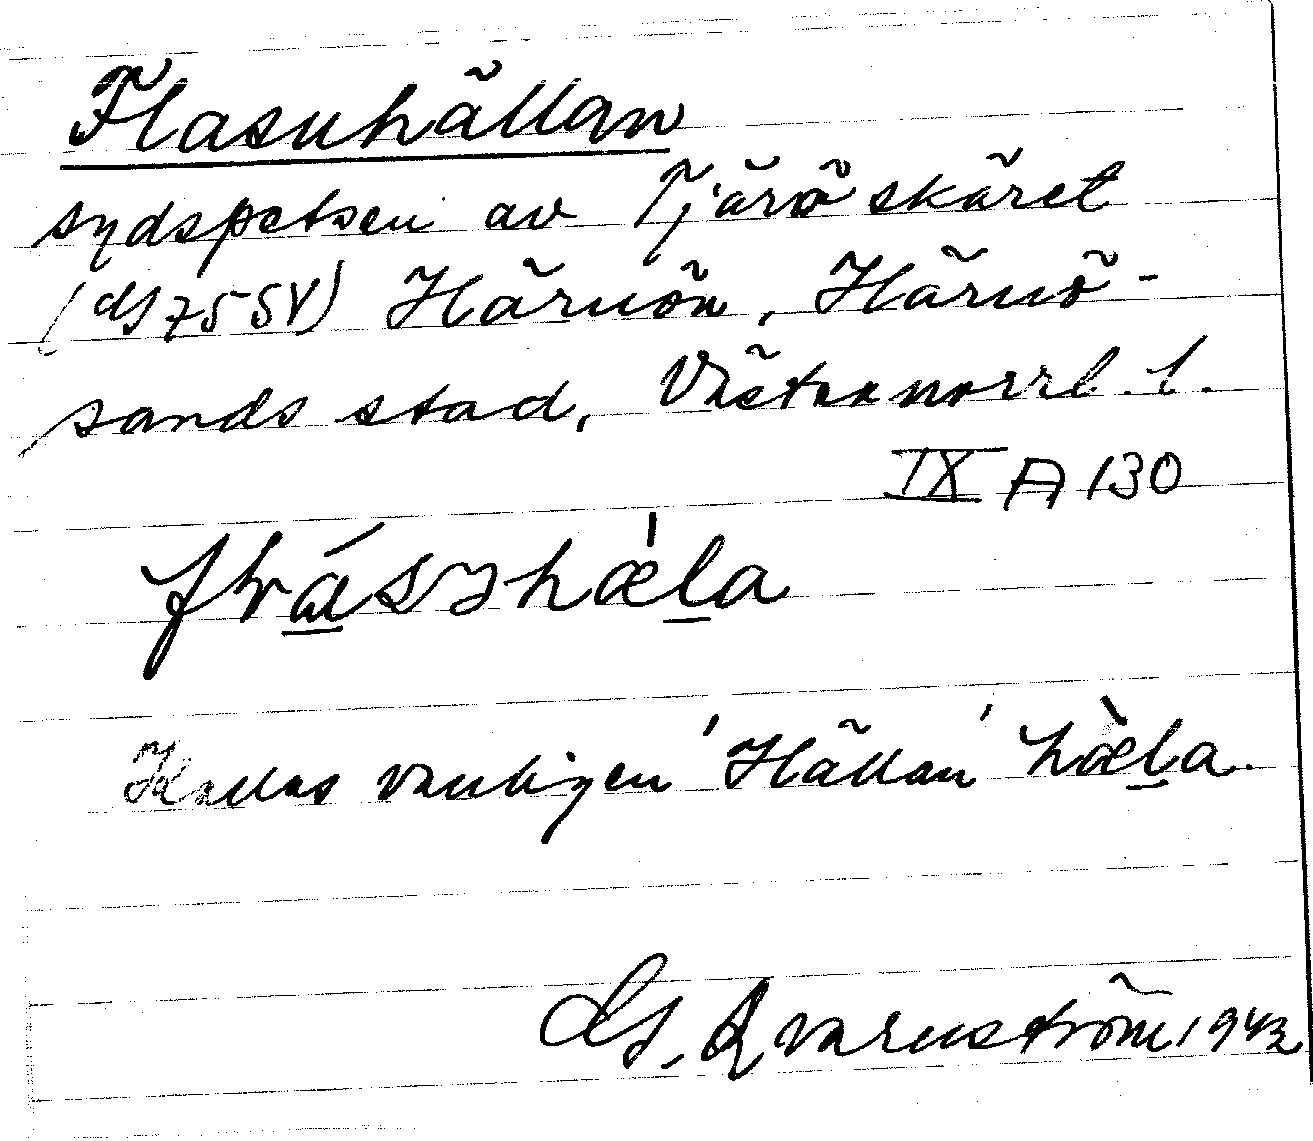 Flasuhällan
sydspetsen av Tjäröskäret
(dS 75 SV) Härnön, Härnö-
sands stad, Västernorrl. l.
IX A 130
Kallas vanligen 'Hällan' hæ̀la.
Qvarnström 1943